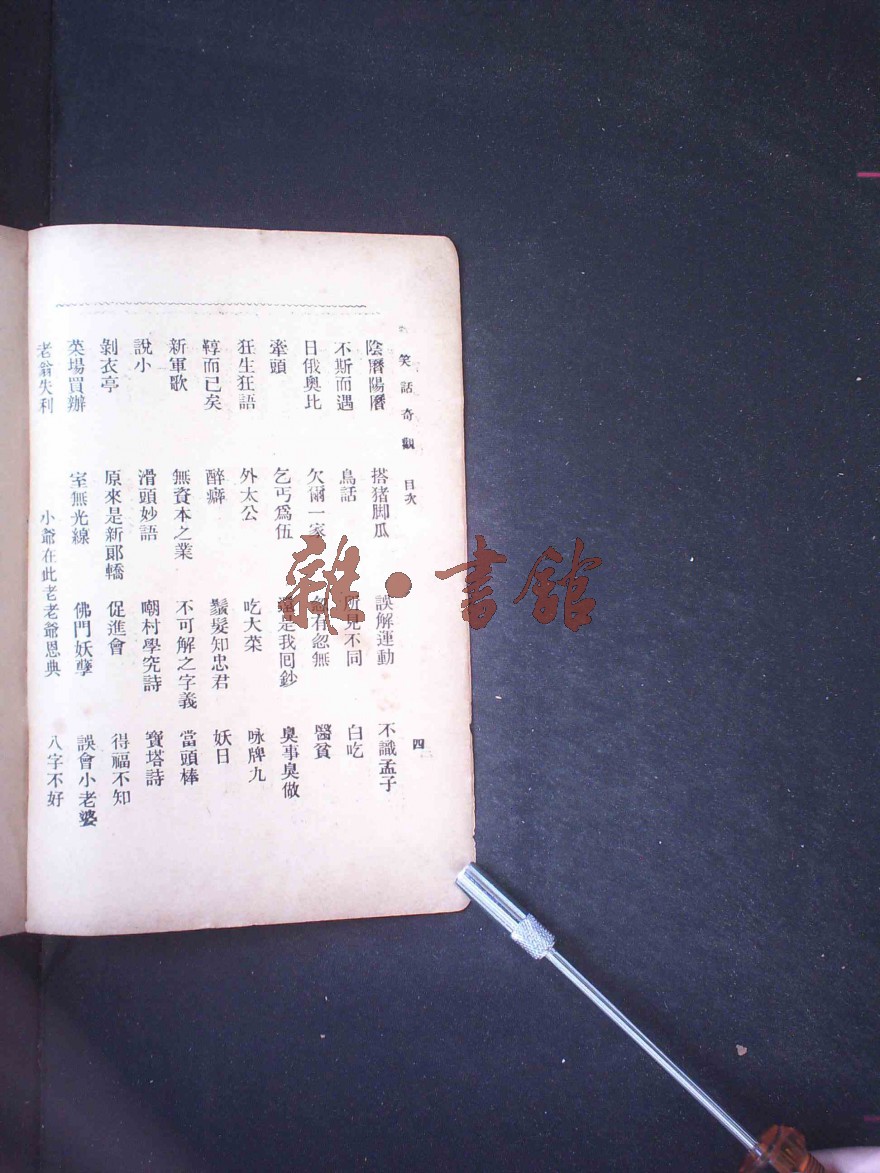 笑話奇觀 目次 四
陰曆陽曆 搭猪脚瓜 誤解運動 不識孟子
不斯而遇 鳥話 所見不同 白吃
日俄奧比 欠爾一家 忽有忽無 醫貧
牽頭 乞丐爲伍 還是我囘鈔 臭事臭做
狂生狂語 外太公 吃大菜 咏牌九
鞟而已矣 醉癖 鬚髮知忠君 妖日
新軍歌 無資本之業 不可解之字義 當頭棒
說小 滑頭妙語 嘲村學究詩 寶塔詩
剝衣亭 原來是新郞轎 促進會 得福不知
菜場買辦 室無光線 佛門妖孽 誤會小老婆
老翁失利 小爺在此老老爺恩典 八字不好
雜·書館